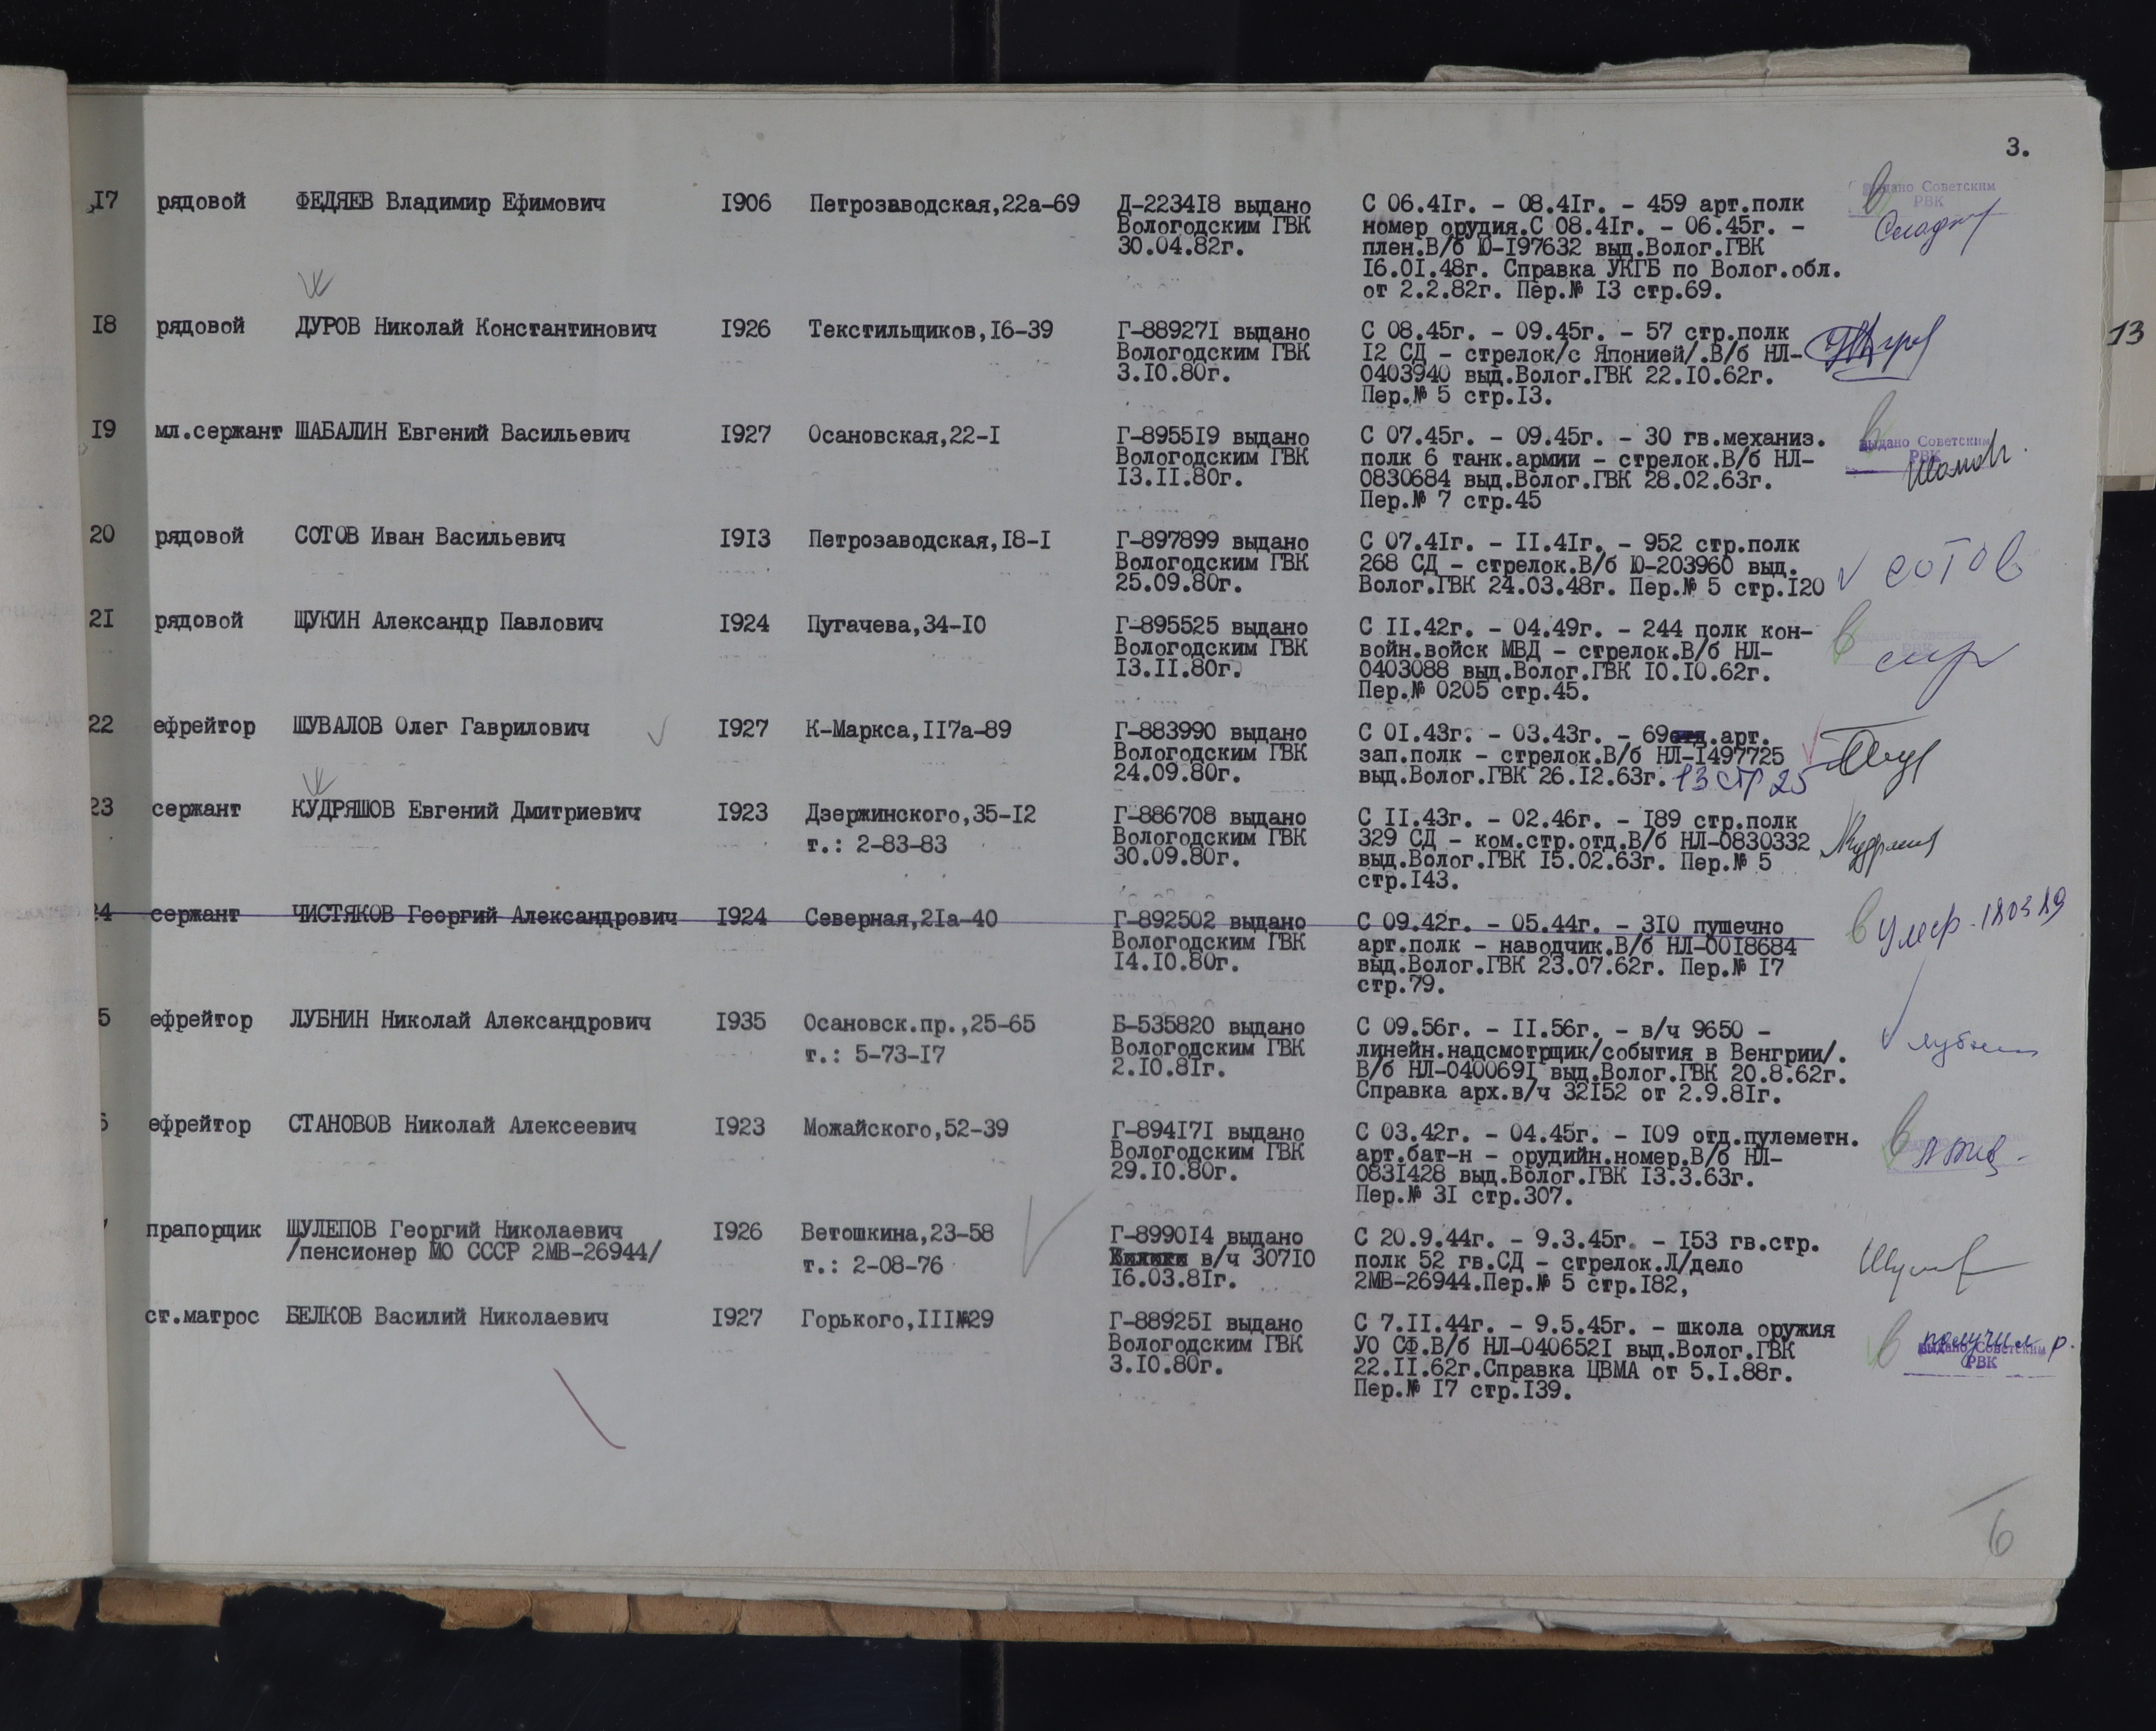 3.
17 рядовой ФЕДЯЕВ Владимир Ефимович 1906 Петрозаводская,22а-69 Д-223418 выдано С 06.41г. - 08.41г. - 459 арт.полк выдано Советским
Вологодским ГВК номер орудия.С 08.41г. - 06.45г. - РВК
30.04.82г. плен.В/б Ю-197632 выд.Волог.ГВК
16.01.48г. Справка УКГБ по Волог.обл.
от 2.2.82г. Пер.№ 13 стр.69.
18 рядовой ДУРОВ Николай Константинович 1926 Текстильщиков,16-39 Г-889271 выдано С 08.45г. - 09.45г. - 57 стр.полк 13
Вологодским ГВК 12 СД - стрелок/с Японией/.В/б НЛ-
3.10.80г. 0403940 выд.Волог.ГВК 22.10.62г.
Пер.№ 5 стр.13.
19 мл.сержант ШАБАЛИН Евгений Васильевич 1927 Осановская,22-1 Г-895519 выдано С 07.45г. - 09.45г. - 30 гв.механиз. выдано Советским
Вологодским ГВК полк 6 танк.армии - стрелок.В/б НЛ- РВК
13.11.80г. 0830684 выд.Волог.ГВК 28.02.63г.
Пер.№ 7 стр.45
20 рядовой СОТОВ Иван Васильевич 1913 Петрозаводская,18-1 Г-897899 выдано С 07.41г. - 11.41г. - 952 стр.полк
Вологодским ГВК 268 СД - стрелок.В/б Ю-203960 выд. сотов
25.09.80г. Волог.ГВК 24.03.48г. Пер.№ 5 стр.120
21 рядовой ЩУКИН Александр Павлович 1924 Пугачева,34-10 Г-895525 выдано С 11.42г. - 04.49г. - 244 полк кон- выдано Советским
Вологодским ГВК войн.войск МВД - стрелок.В/б НЛ- РВК
13.11.80г. 0403088 выд.Волог.ГВК 10.10.62г.
Пер.№ 0205 стр.45.
22 ефрейтор ШУВАЛОВ Олег Гаврилович 1927 К-Маркса,117а-89 Г-883990 выдано С 01.43г. - 03.43г. - 69отд.арт.
Вологодским ГВК зап.полк - стрелок.В/б НЛ-1497725
24.09.80г. выд.Волог.ГВК 26.12.63г. 13 стр 25
23 сержант КУДРЯШОВ Евгений Дмитриевич 1923 Дзержинского,35-12 Г-886708 выдано С 11.43г. - 02.46г. - 189 стр.полк
т.: 2-83-83 Вологодским ГВК 329 СД - ком.стр.отд.В/б НЛ-0830332
30.09.80г. выд.Волог.ГВК 15.02.63г. Пер.№ 5
стр.143.
24 сержант ЧИСТЯКОВ Георгий Александрович 1924 Северная,21а-40 Г-892502 выдано С 09.42г. - 05.44г. - 310 пушечно Умер
Вологодским ГВК арт.полк - наводчик.В/б НЛ-0018684
14.10.80г. выд.Волог.ГВК 23.07.62г. Пер.№ 17
стр.79.
5 ефрейтор ЛУБНИН Николай Александрович 1935 Осановск.пр.,25-65 Б-535820 выдано С 09.56г. - 11.56г. - в/ч 9650 -
т.: 5-73-17 Вологодским ГВК линейн.надсмотрщик/события в Венгрии/.
2.10.81г. В/б НЛ-0400691 выд.Волог.ГВК 20.8.62г.
Справка арх.в/ч 32152 от 2.9.81г.
6 ефрейтор СТАНОВОВ Николай Алексеевич 1923 Можайского,52-39 Г-894171 выдано С 03.42г. - 04.45г. - 109 отд.пулеметн.
Вологодским ГВК арт.бат-н - орудийн.номер.В/б НЛ-
29.10.80г. 0831428 выд.Волог.ГВК 13.3.63г.
Пер.№ 31 стр.307.
прапорщик ШУЛЕПОВ Георгий Николаевич 1926 Ветошкина,23-58 Г-899014 выдано С 20.9.44г. - 9.3.45г. - 153 гв.стр.
/пенсионер МО СССР 2МВ-26944/ т.: 2-08-76 в/ч 30710 полк 52 гв.СД - стрелок.Л/дело
16.03.81г. 2МВ-26944.Пер.№ 5 стр.182,
ст.матрос БЕЛКОВ Василий Николаевич 1927 Горького,111№29 Г-889251 выдано С 7.11.44г. - 9.5.45г. - школа оружия получил
Вологодским ГВК УО СФ.В/б НЛ-0406521 выд.Волог.ГВК выдано Советским
3.10.80г. 22.11.62г.Справка ЦВМА от 5.1.88г. РВК
Пер.№ 17 стр.139.
6